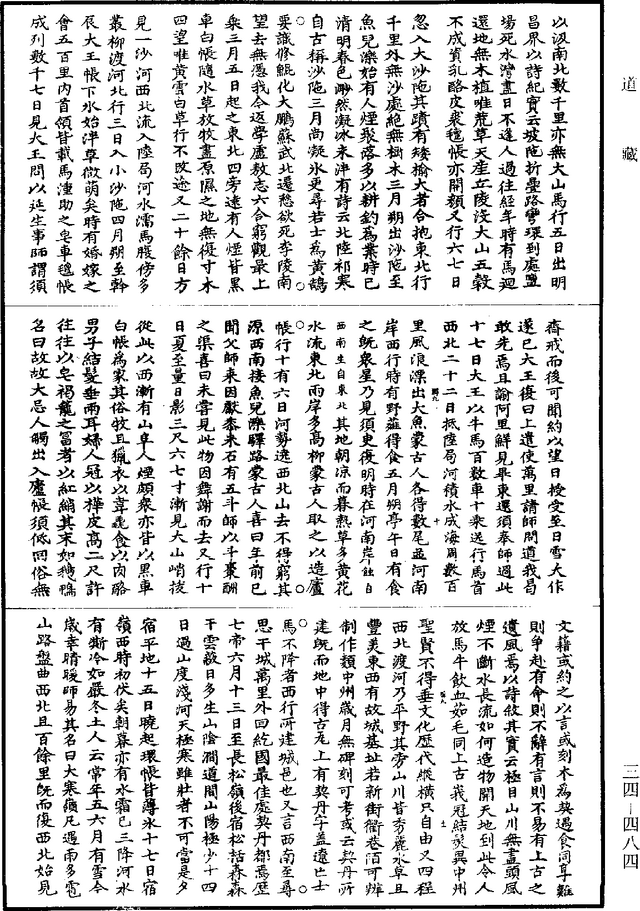 道藏
以汳南北數千里亦無大山馬行五日出明
昌界以詩紀實云坡陁折疊路彎環到處鹽
場死水灣盡日不逢人過往經年時有馬迴
還地無木植唯荒草天產丘陵沒大山五穀
不成資乳酪皮裘氊帳亦開顏又行六七日
忽入大沙陁其蹟有矮榆大者合抱東北行
千里外無沙處絕無樹木三月朔出沙陁至
魚兒濼始有人煙聚落多以耕釣為業時已
清明春色渺然凝冰未泮有詩云北陸祁寒
自古稱沙陁三月尚凝冰更尋若士為黃鵠
要識修鯤化大鵬蘇武北遷愁欲死李陵南
望去無憑我今返學盧敖志六合窮觀最上
乘三月五日起之東北四旁遠有人煙皆黑
車白帳隨水草放牧盡原隰之地無復寸木
四望唯黃雲白草行不改途又二十餘日方
見一沙河西北流入陸局河水濡馬腹傍多
叢柳渡河北行三日入小沙陁四月朔至斡
辰大王帳下冰始泮草微萌矣時有婚嫁之
會五百里內首領皆載馬湩助之皂車氊帳
成列數千七日見大王問以延生事師謂須
齋戒而後可聞約以望日授受至日雪大作
遂已大王復曰上遣使萬里請師問道我曷
敢先焉且諭阿里鮮見畢東還須奉師過此
十七日大王以牛馬百數車十乘送行馬首
西北二十二日抵陸局河積水成海周數百
里風浪漂出大魚蒙古人各得數尾並河南
岸西行時有野薤得食五月朔亭午日有食
之既眾星乃見須臾復明時在河南岸蝕自
西南生自東北其地朝涼而暮熱草多黃花
水流東北兩岸多高柳蒙古人取之以造廬
帳行十有六日河勢遶西北山去不得窮其
源西南接魚兒濼驛路蒙古人喜曰年前已
聞父師來因獻黍米石有五斗師以斗棗酬
之渠喜曰未嘗見此物因舞謝而去又行十
日夏至量日影三尺六七寸漸見大山峭拔
從此以西漸有山阜人煙頗眾亦皆以黑車
白帳為家其俗牧且獵衣以韋毳食以肉酪
男子結髮垂兩耳婦人冠以樺皮高二尺許
往往以皂褐籠之富者以紅綃其末如鵝鴨
名曰故故大忌人觸出入廬帳須低徊俗無
文籍或約之以言或刻木為契遇食同享難
則爭赴有命則不辭有言則不易有上古之
遺風焉以詩敘其實云極目山川無盡頭風
煙不斷水長流如何造物開天地到此令人
放馬牛飲血茹毛同上古峩冠結髮異中州
聖賢不得垂文化歷代縱橫只自由又四程
西北渡河乃平野其旁山川皆秀麗水草且
豐美東西有故城基址若新街衢巷陌可辨
制作類中州歲月無碑刻可考或云契丹所
建既而地中得古瓦上有契丹字蓋遼亡士
馬不降者西行所建城邑也又言西南至尋
思干城萬里外回紇國最佳處契丹都焉歷
七帝六月十三日至長松嶺後宿松栝森森
干雲蔽日多生山陰澗道間山陽極少十四
日過山度淺河天極寒雖壯者不可當是夕
宿平地十五日曉起環帳皆薄冰十七日宿
嶺西時初伏矣朝暮亦有冰霜已三降河水
有澌冷如嚴冬土人云常年五六月有雪今
歲幸晴暖師易其名曰大寒嶺凡遇雨多雹
山路盤曲西北且百餘里既而復西北始見
三四—四八四